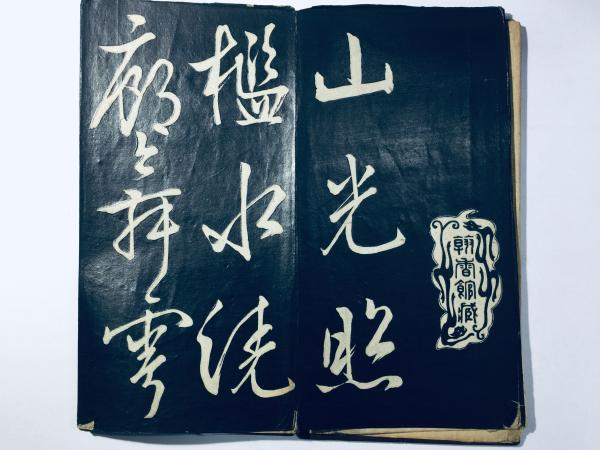 翰香館藏
山光照
檻水繞
廊舞雩